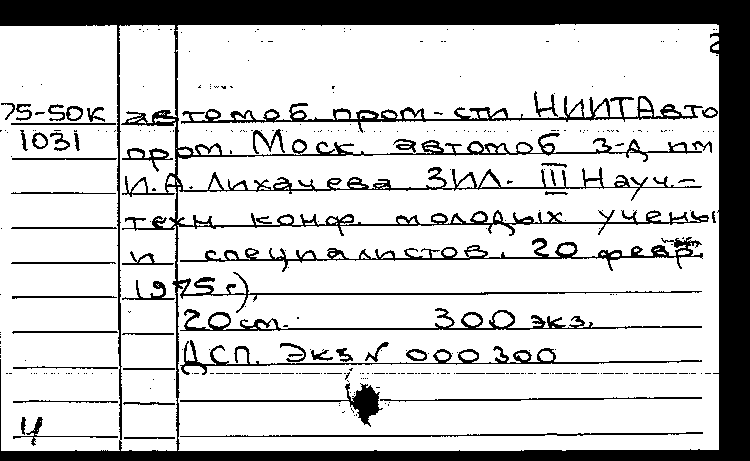 2
75-50К автомоб. пром-сти. НИИТАвто
1031 пром. Моск. автомоб з-д им
И.А. Лихачева ЗИЛ. III Науч.-
техн. конф. молодых учены
и специалистов. 20 февр.
1975 г.).
20 см. 300 экз.
ДСП. Экз № 000300
4